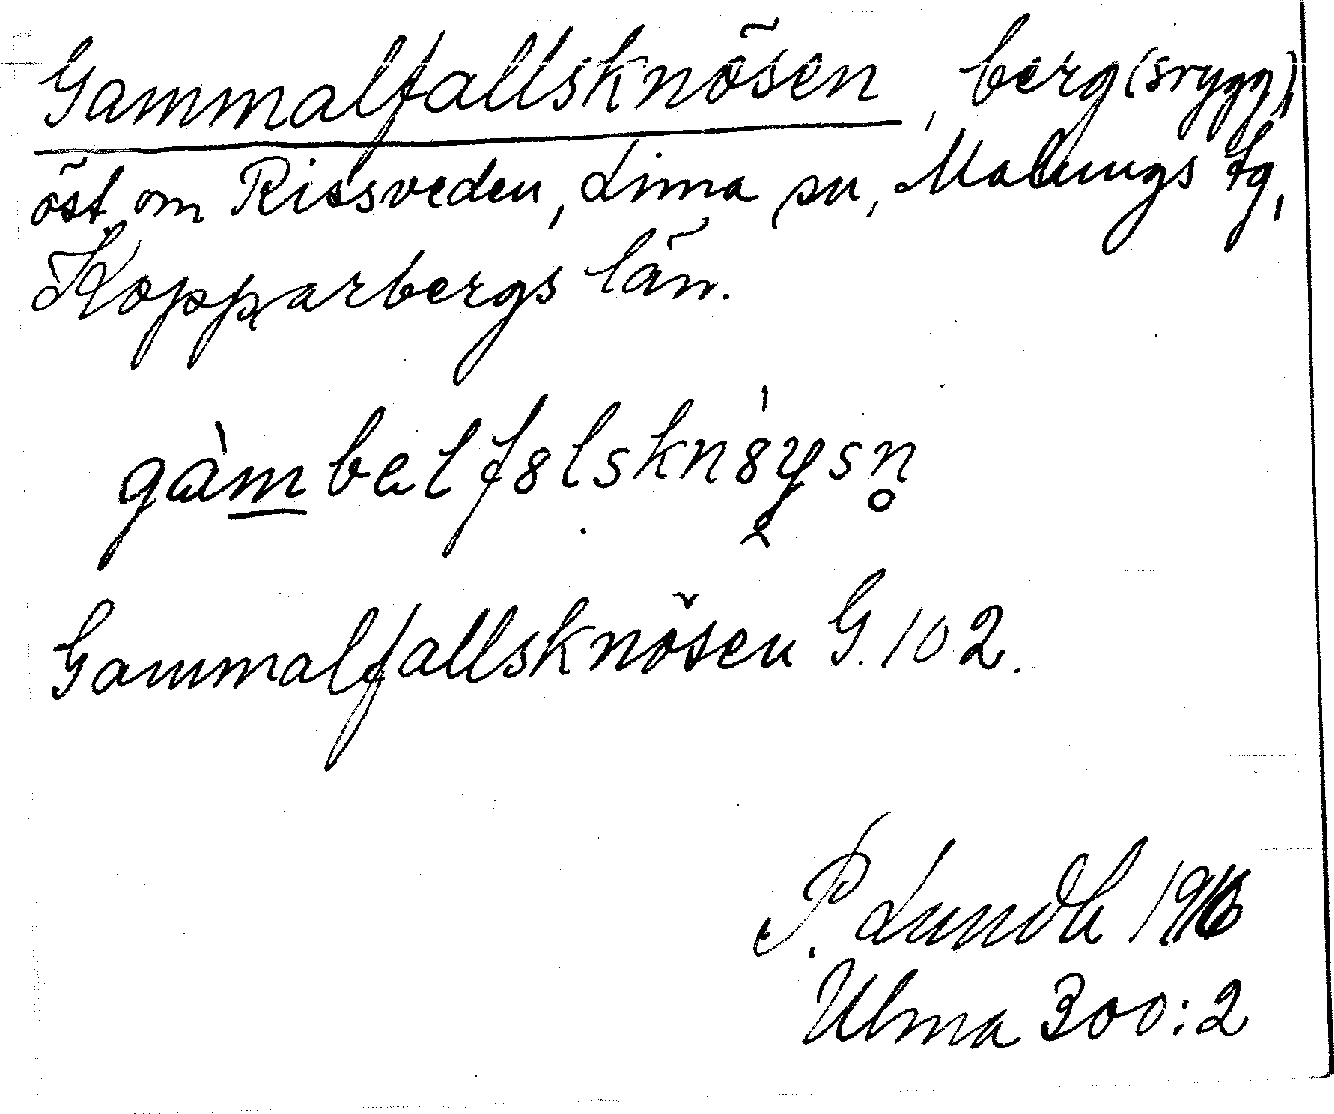 Gammalfallsknösen, berg(srygg),
öst om Rissveden, Lima sn, Malungs tg,
Kopparbergs län.
gàmbelfslsknöysn̥
Gammalfallsknösen G. 102.
P. Lundh 1916
Ulma 300:2